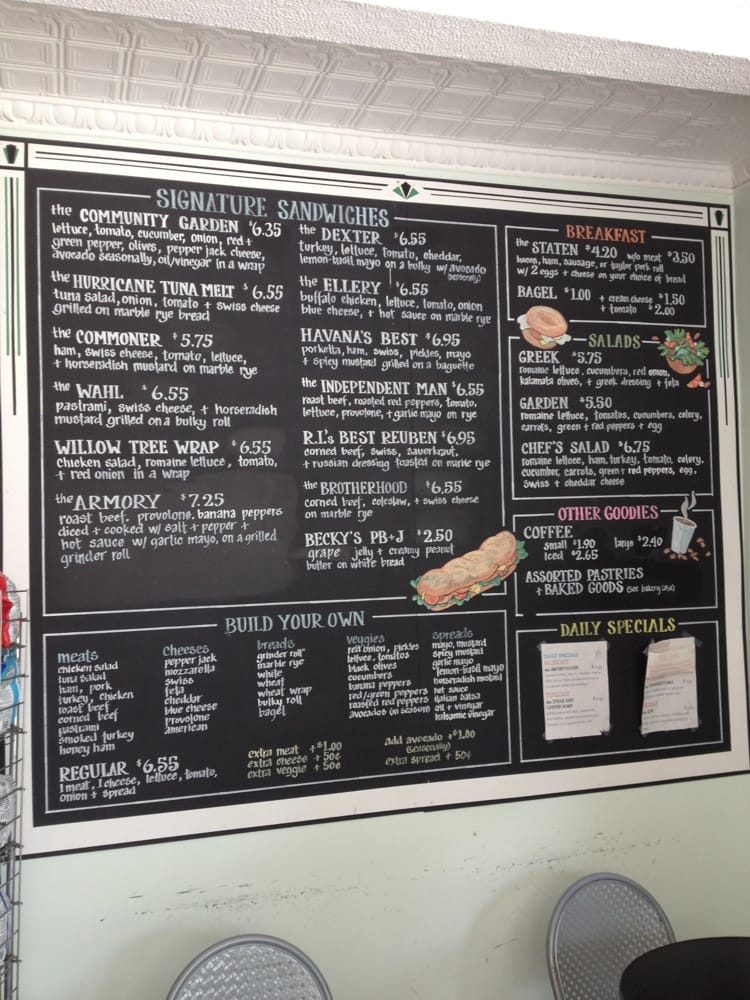 SIGNATURE SANDWICHES
the COMMUNITY GARDEN $6.35
lettuce, tomato, cucumber, onion, red +
green pepper, olives, pepper jack cheese,
avocado seasonally, oil/vinegar in a wrap
the HURRICANE TUNA MELT $6.55
tuna salad, onion, tomato + swiss cheese
grilled on marble rye bread
the COMMONER $5.75
ham, swiss cheese, tomato, lettuce,
+ horseradish mustard on marble rye
the WAHL $6.55
pastrami, swiss cheese, + horseradish
mustard grilled on a bulky roll
WILLOW TREE WRAP $6.55
chicken salad, romaine lettuce, tomato,
+ red onion in a wrap
the ARMORY $7.25
roast beef, provolone, banana peppers
diced + cooked w/ salt + pepper +
hot sauce w/ garlic mayo, on a grilled
grinder roll
the DEXTER $6.55
turkey, lettuce, tomato, cheddar,
lemon-basil mayo on a bulky w/ avocado
(seasonally)
the ELLERY $6.55
buffalo chicken, lettuce, tomato, onion
blue cheese, + hot sauce on marble rye
HAVANA'S BEST $6.95
porketta, ham, swiss, pickles, mayo
+ spicy mustard grilled on a baguette
the INDEPENDENT MAN $6.55
roast beef, roasted red peppers, tomato,
lettuce, provolone, + garlic mayo on rye
R.I.'s BEST REUBEN $6.95
corned beef, swiss, sauerkraut,
+ russian dressing toasted on marble rye
the BROTHERHOOD $6.55
corned beef, coleslaw, + swiss cheese
on marble rye
BECKY'S PB+J $2.50
grape jelly + creamy peanut
butter on white bread
BREAKFAST
the STATEN $4.20 w/o meat $3.50
bacon, ham, sausage, or taylor pork roll
w/ 2 eggs + cheese on your choice of bread
BAGEL $1.00 + cream cheese $1.50
+ tomato $2.00
SALADS
GREEK $5.75
romaine lettuce, cucumbers, red onion,
kalamata olives, + greek dressing + feta
GARDEN $5.50
romaine lettuce, tomatoes, cucumbers, celery,
carrots, green + red peppers + egg
CHEF'S SALAD $6.75
romaine lettuce, ham, turkey, tomato, celery,
cucumber, carrots, green + red peppers, egg,
swiss + cheddar cheese
OTHER GOODIES
COFFEE
small $1.90 large $2.40
iced $2.65
ASSORTED PASTRIES
+ BAKED GOODS (see bakery case)
BUILD YOUR OWN
meats
chicken salad
tuna salad
ham, pork
turkey, chicken
roast beef
corned beef
pastrami
smoked turkey
honey ham
cheeses
pepper jack
mozzarella
swiss
feta
cheddar
blue cheese
provolone
american
breads
grinder roll
marble rye
white
wheat
wheat wrap
bulky roll
bagel
veggies
red onion, pickles
lettuce, tomatos
black olives
cucumbers
banana peppers
red/green peppers
roasted red peppers
avocados (in season)
spreads
mayo, mustard
spicy mustard
garlic mayo
lemon-basil mayo
horseradish mustard
hot sauce
italian salsa
oil + vinegar
balsamic vinegar
REGULAR $6.55
1 meat, 1 cheese, lettuce, tomato,
onion + spread
extra meat + $1.00
extra cheese + 50¢
extra veggie + 50¢
add avocado + $1.00
(seasonally)
extra spread + 50¢
DAILY SPECIALS
DAILY SPECIALS
MONDAY
TUESDAY